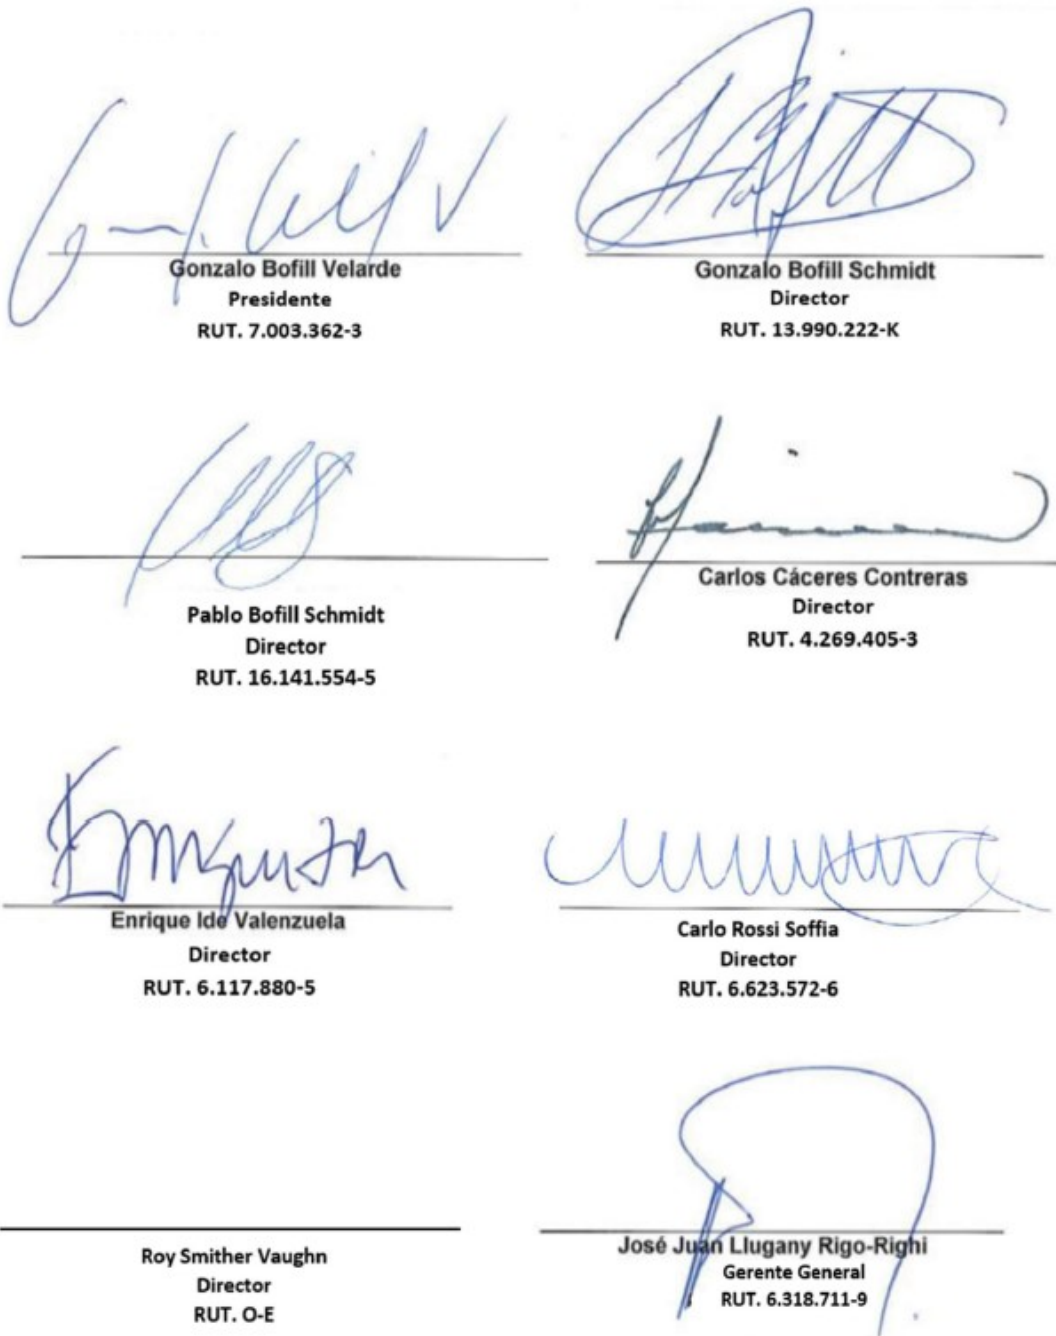 Gonzalo Bofill Velarde
Presidente
RUT. 7.003.362-3
Gonzalo Bofill Schmidt
Director
RUT. 13.990.222-K
Pablo Bofill Schmidt
Director
RUT. 16.141.554-5
Carlos Cáceres Contreras
Director
RUT. 4.269.405-3
Enrique Ide Valenzuela
Director
RUT. 6.117.880-5
Carlo Rossi Soffia
Director
RUT. 6.623.572-6
Roy Smither Vaughn
Director
RUT. O-E
José Juan Llugany Rigo-Righi
Gerente General
RUT. 6.318.711-9